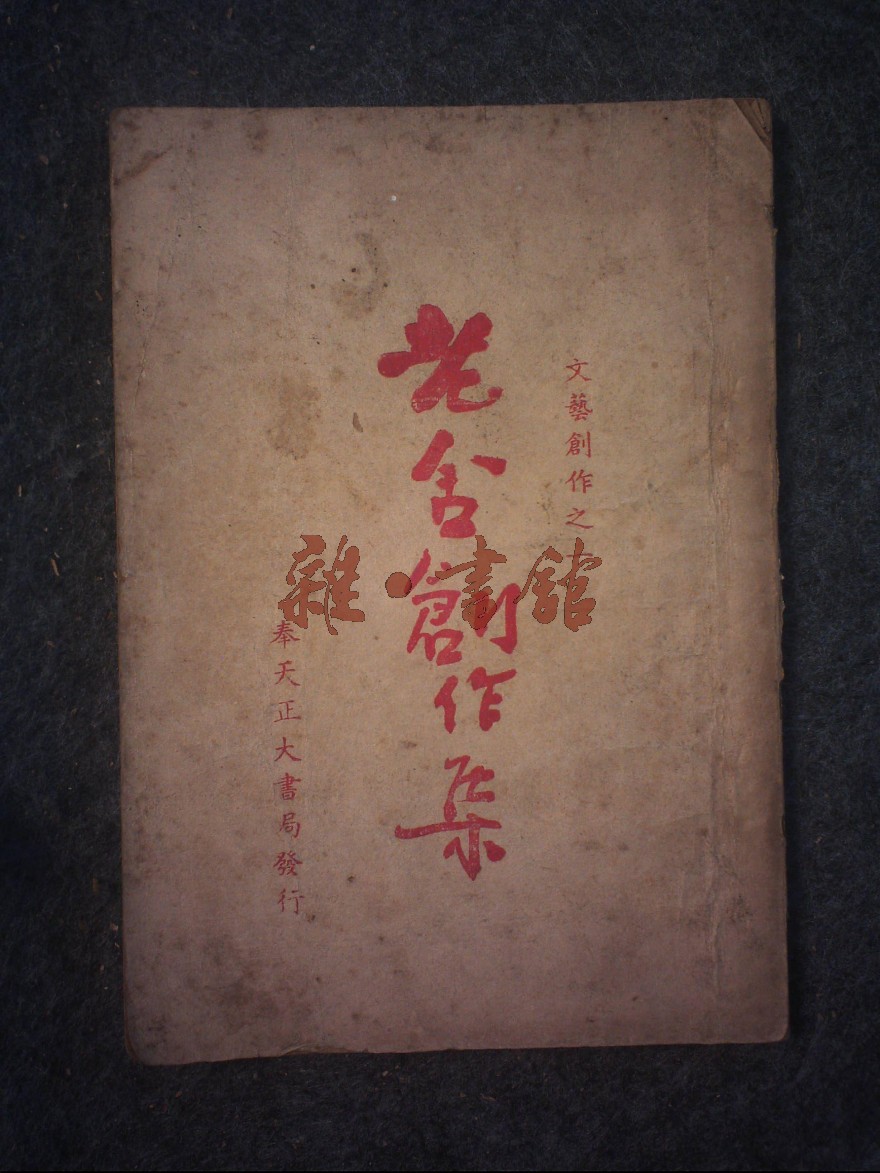 文藝創作之
老舍創作集
奉天正大書局發行
雜·書館